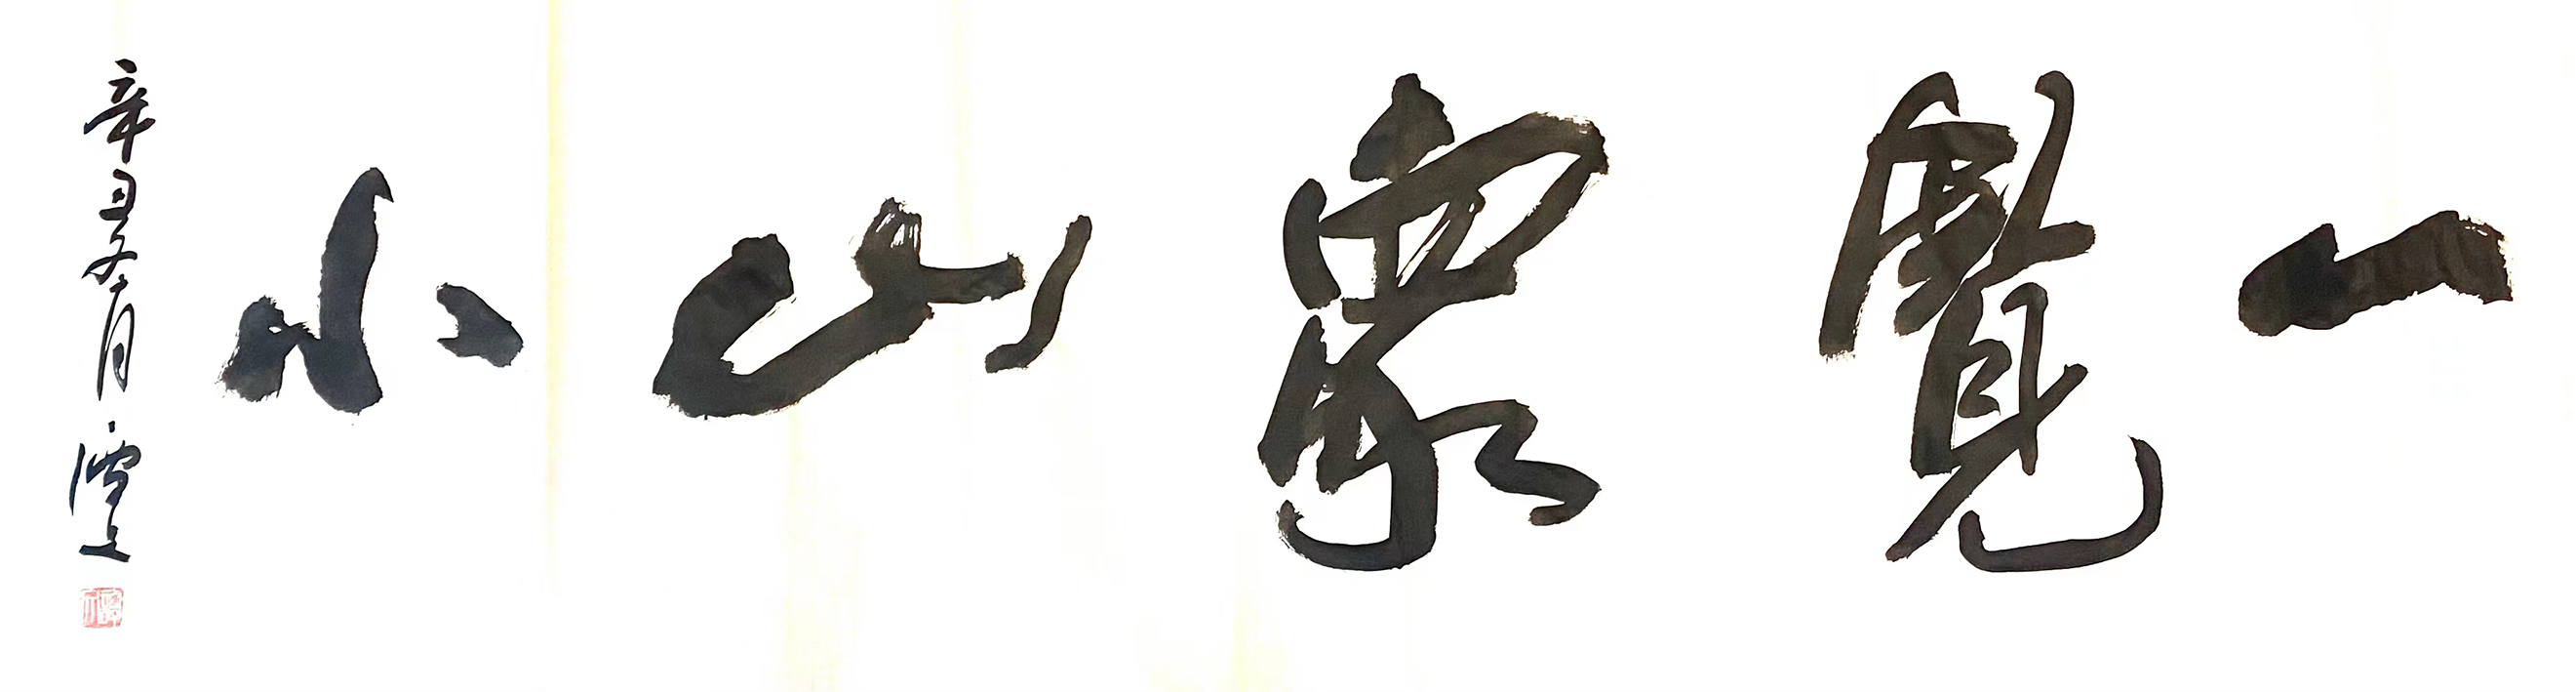 一覽眾山小
辛丑冬月